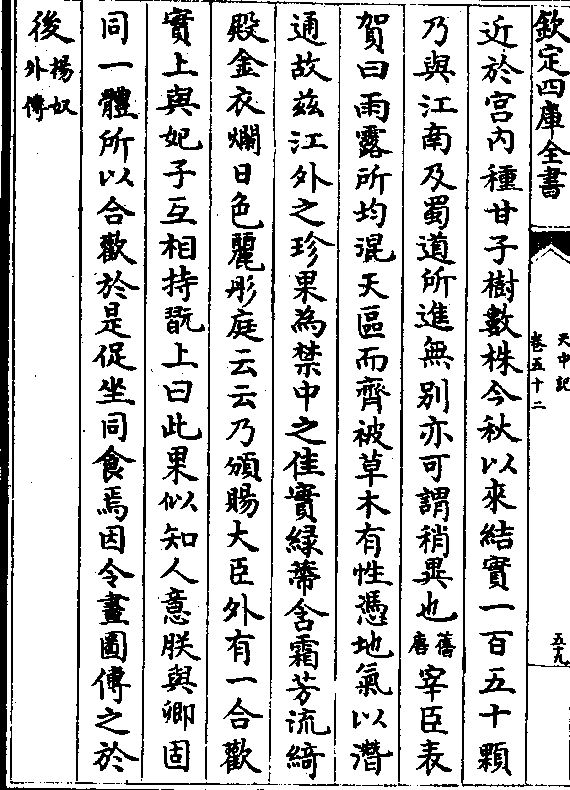 欽定四庫全書
天中記
卷五十二
五九
近於宫内種甘子樹數株今秋以來結實一百五十顆
乃與江南及蜀道所進無别亦可謂稍異也舊唐宰臣表
賀曰雨露所均混天區而齊被草木有性憑地氣以潛
通故兹江外之珍果為禁中之佳實緑蔕含霜芳流綺
殿金衣爛日色麗彤庭云云乃頒賜大臣外有一合歡
實上與妃子互相持翫上曰此果似知人意朕與卿固
同一體所以合歡於是促坐同食焉因令畫圖傳之於
後楊奴外傳